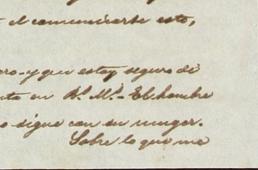 el comunicarte esto,
ero - y que estoy seguro de
en R. Md. - El hombre
o sigue con su muger.
Sobre lo que me